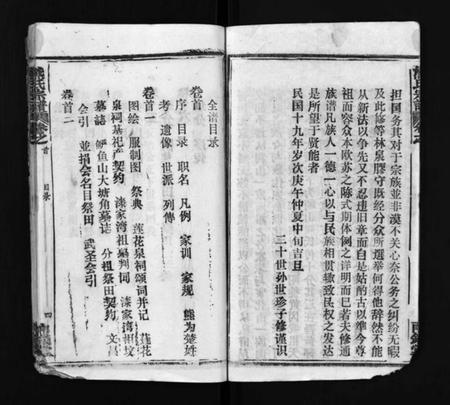 担国务其对于宗族並非漠不关心奈公务之纠纷无暇
及此修等林泉膠守既经分众所選举何得他辞然不能
从新法以争先又不忍违旧章而自是姑酌古以準今尊
祖而容众本欧苏之陈式期体例之详明而已若夫修通
族谱凡族人一德一心以与民族相贯辙致民权之发达
是所望于贤能者
民国十九年岁次庚午仲夏中旬吉旦
二十世孙世珍子修谨识
全谱目录
卷首
序 目录 职名 凡例 家训 家规 熊为楚姓
考 遺像 世派 列傳
卷首一
图绘 服制图 祭典 莲花泉祠颂词并记 莲花
泉祠基祀产契约 湙家湾祖塋判词 湙家湾祖坟
墓誌 鲤鱼山大塘角墓誌 分祖祭田契约 文昌
会引 並捐会名目祭田 武圣会引
卷首二
熊氏宗谱 卷之首 目录 四